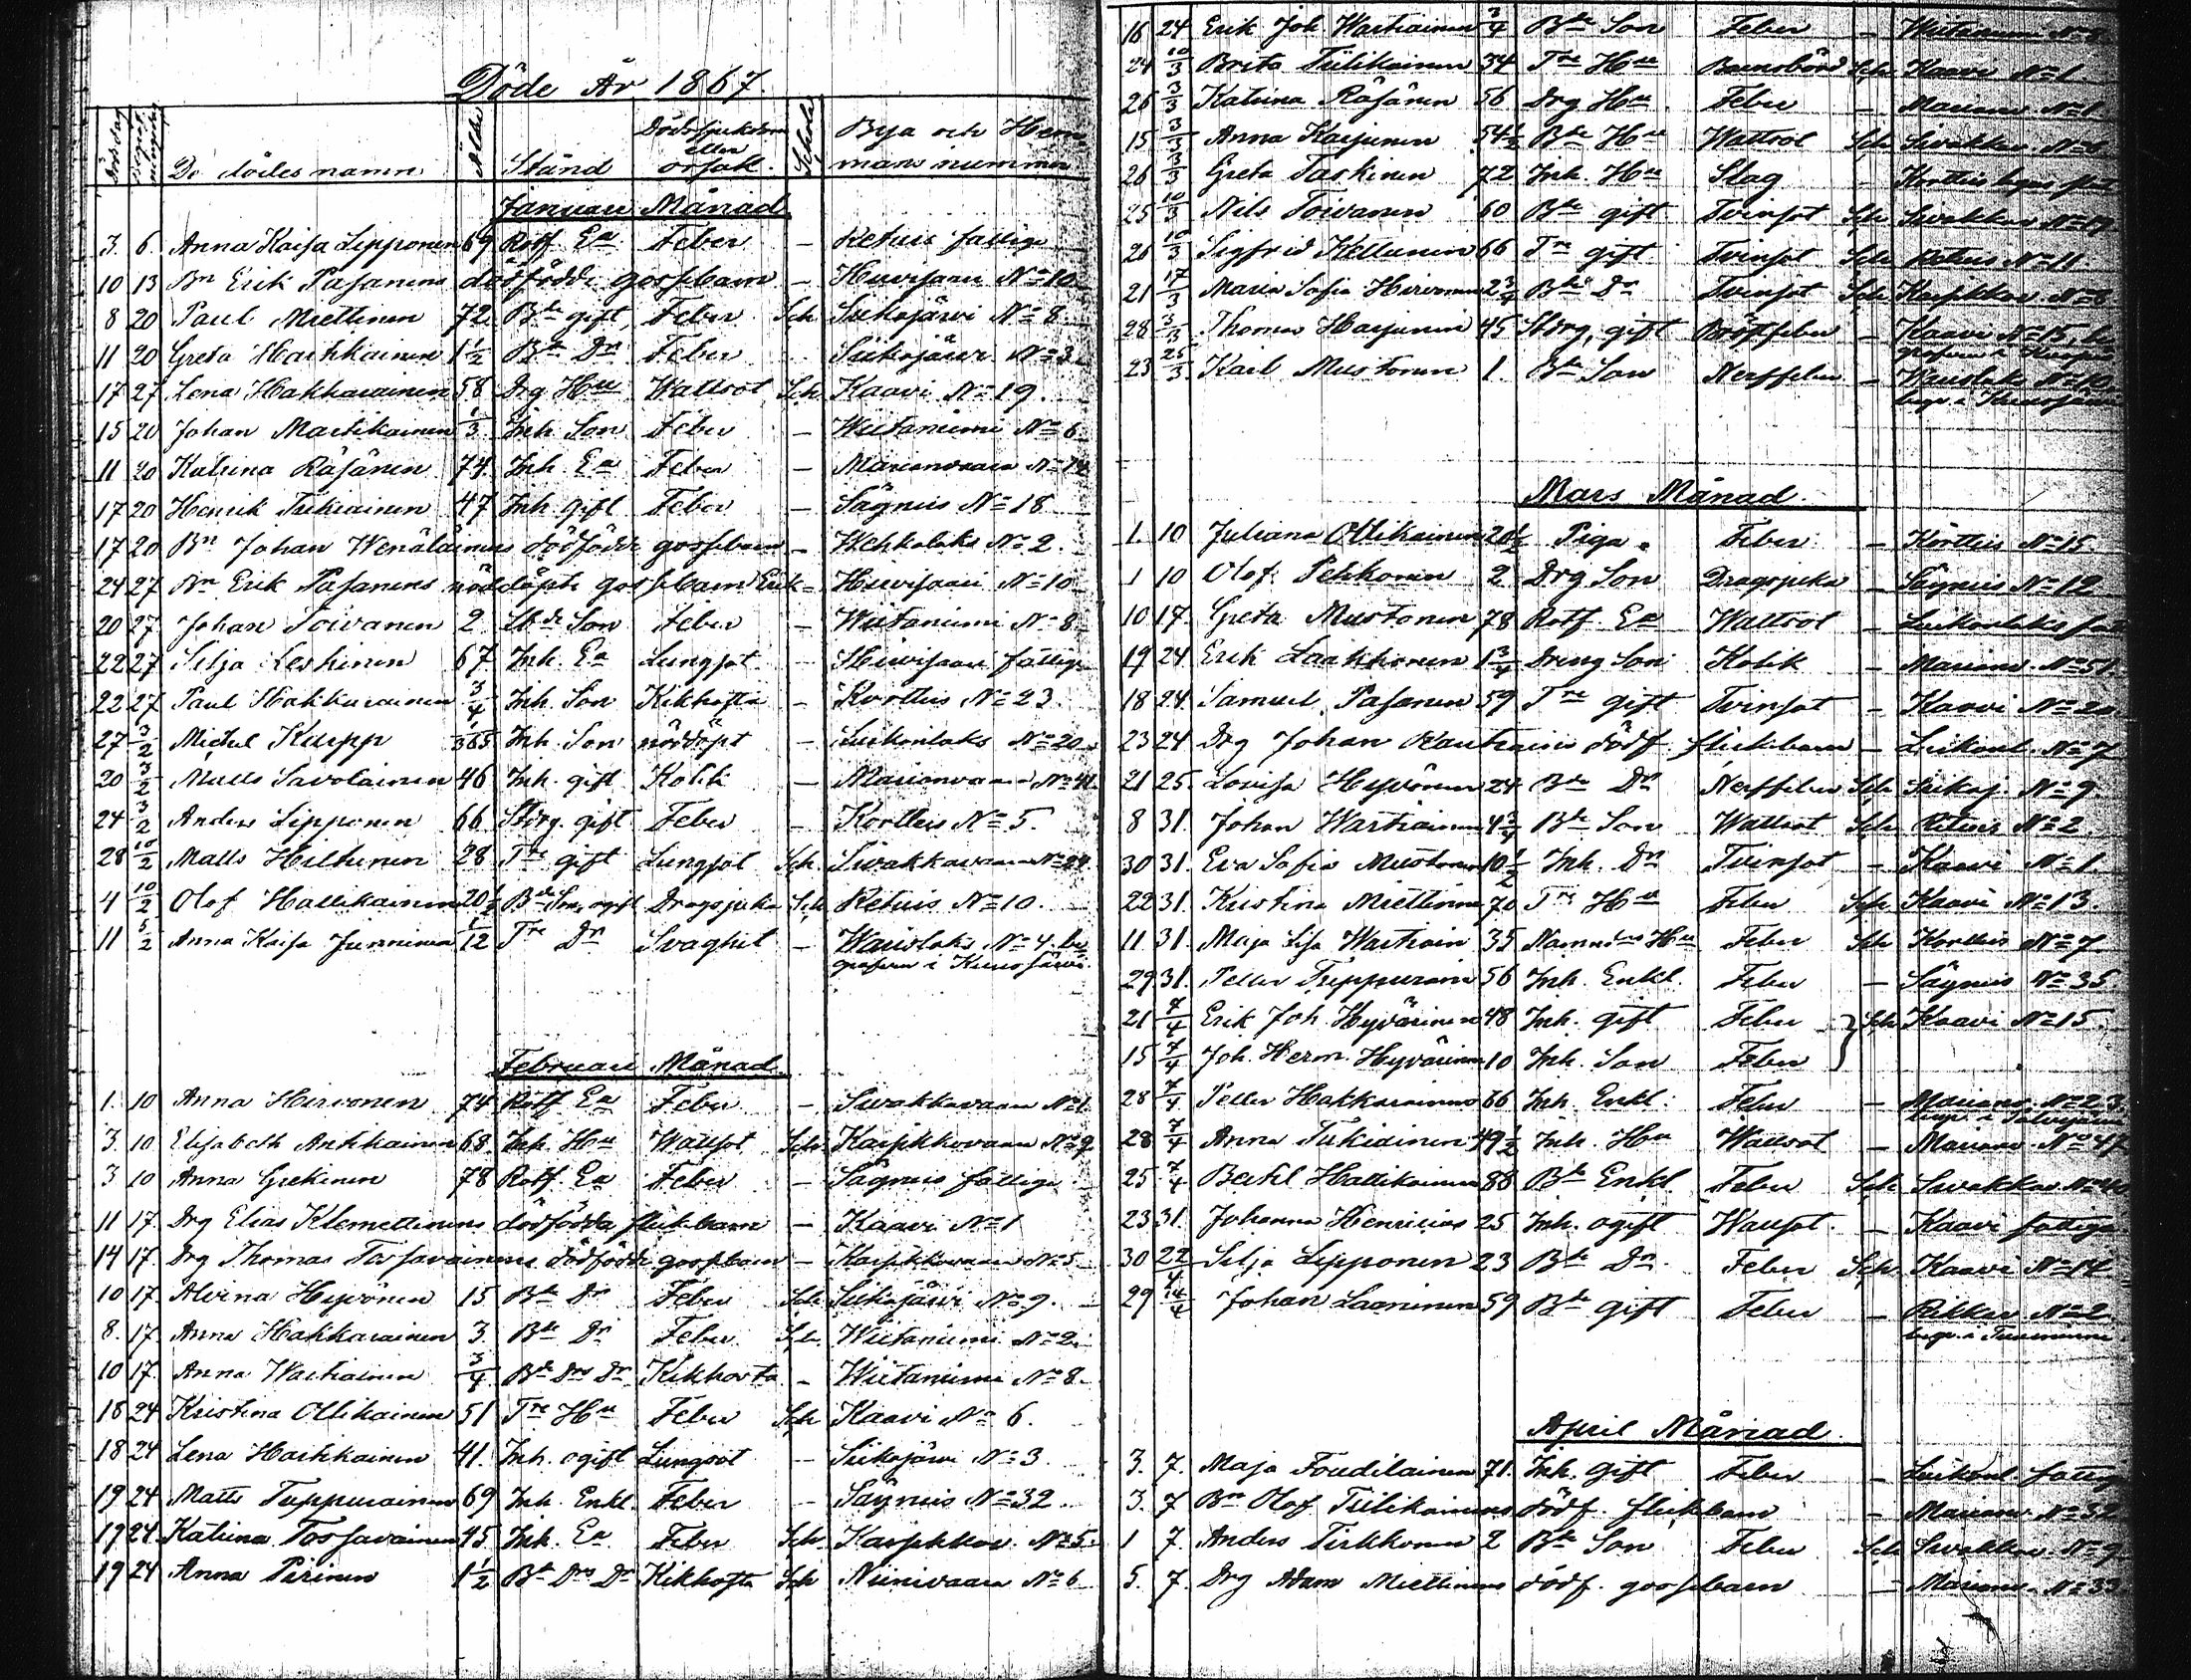 Döde År 1867.
Dödsdag Begrafningsdag De dödes namn Ålder Stånd Dödssjukdom eller orsak. Schola Bya och Hemmans nummer
Januari Månad
3. 6. Anna Kaisa Lipponen 69 Rotf. Ea Feber – Retuis fattige
10 13 Bn Erik Pasanens dödfödde gossebarn – Huvisaari No 10
8 20 Paul Miettinen 72 Bde gift, Feber Sch Siikajärvi No 8
11 20 Greta Haikkainen 1 1/2 Bde Dr Feber Siikajärvi No 3
17 27 Lena Hakkarainen 58 Drg Hu Wattsot Sch Kaavi No 19.
15 20 Johan Martikainen 1/3 Inh Son Feber – Wiitaniemi No 6
11 20 Katrina Räsänen 74. Inh. Ea Feber – Marianvaara No 14
17 20 Henrik Tukiainen 47 Inh gift Feber – Sägnius No 18
17 20 Bn Johan Wenäläinens dödfödde gossebarn – Wehkalaks No 2.
24 27 Bn Erik Pasanens nöddöpte gossebarn Erik – Huvisaari No 10
20 27 Johan Toivanen 2 Bde Son Feber – Wiitaniemi No 8
22 27 Silja Leskinen 67 Inh. Ea Lungsot – Huvisaari fattige
22 27 Paul Hakkarainen 3/4 Inh. Son Kikhosta – Kortteis No 23
27 3/2 Michel Karpp 1/365 Inh. Son nöddöpt – Luikonlaks No 20
20 3/2 Matts Savolainen 46 Inh. gift Kolik – Marianvaara No 41
24 3/2 Anders Lipponen 66 Storg. gift Feber – Kortteis No 5.
28 10/2 Matts Hiltunen 28 Tre gift Lungsot Sch Sivakkavaara No 24
4 10/2 Olof Hallikainen 20 1/2 Bde Son, ogift Dragsjuka Sch Retuis No 10.
11 5/2 Anna Kaisa Junninen 1/12 Tre Dr Svaghet – Wausolaks No 4. be
grafven i Kuusjärvi.
Februari Månad
1. 10 Anna Hirvonen 74 Rotf Ea Feber – Sivakkavaara No 1
3. 10 Elisabeth Antikainen 68. Inh. Hu Wattsot Sch Kaspikkovaara No 9
3 10 Anna Grekinen 78 Rotf. Ea Feber – Sägnius fattige
11 17. Drg Elias Klemettinens dödfödda flickbarn – Kaavi No 1
14 17. Drg Thomas Tossavainens dödfödde gossebarn – Karsikkovaara No 5
10 17. Alvina Hyvönen 15 Bde Dr Feber Sch Siikajärvi No 9.
8. 17. Anna Hakkarainen 3. Bde Dr Feber Sch. Wiitaniemi No 2.
10 17. Anna Wartiainen 3/4 Bde Drs Dr Kikhosta – Wiitaniemi No 8
18 24 Kristina Ollikainen 51 Tre Hu Feber Sch Kaavi No 6.
18 24 Lena Haikkainen 41. Inh. ogift Lungsot – Siikajärvi No 3
19 24 Matts Tuppurainen 69 Inh. Enkl. Feber – Sägnius No 32
19 24. Katrina Tossavainen 45 Inh. Ea Feber Sch. Karsikkov. No 5
19 24 Anna Pirinen 1 1/2 Bde Drs Dr Kikhosta Sch Niinivaara No 6
16 24 Erik Joh. Wartiainen 3/4 Bde Son Feber – Wiitaniemi No
24 10/3 Brita Tiilikainen 34 Tre Hu Barnsbörd Sch Kaavi No 1
26 3/3 Katrina Räsänen 56 Drg Hu Feber – Marianv. No 1
15 3/3 Anna Karjunen 54 1/2 Bde Hu Wattsot Sch Sivakkav. No 6
26 3/3 Greta Taskinen 72 Inh. Hu Slag – Kortteis
25 10/3 Nils Toivanen 60 Bde gift Tvinsot Sch Sivakkav. No 19
26 10/3 Sigfrid Kettunen 66 Tre gift Tvinsot Sch Retuis No 11.
21 17/3 Maria Sofia Hirvonen 2 3/4 Bde Dr Tvinsot Sch Karsikkov No 8
28 3/3 Thomas Harjunen 45 Storg. gift Bröstfeber – Kaavi No 15, be
grafven i Kuopio
23 25/3 Karl Mustonen 1. Bde Son Nerffeber – Wausolaks No 10
begr. i Kuusjärvi
Mars Månad
1. 10 Juliana Ollikainen 20 1/2 Piga Feber – Kortteis No 15.
1 10 Olof Pekkonen 2 Drg Son Dragsjuka – Sägnius No 12
10 17. Greta Mustonen 78 Rotf Ea Wattsot – Luikonlaks
19 24 Erik Laakkonen 1 3/4 Dreng Son Kolik – Marianv. No 51.
18 24. Samuel Pasanen 59 Tre gift Tvinsot – Kaavi No 20
23 24 Drg Johan Rautiains dödf. flickebarn – Luikonl. No 7
21 25. Lovisa Hyvönen 24 Bde Dr Nerffeber Sch Siikaj. No 9
8 31. Johan Wartiainen 4 3/4 Bde Son Wattsot Sch Retuis No 2
30 31. Eva Sofia Mustonen 10 1/2 Inh. Dr Tvinsot – Kaavi No 1.
22 31. Kristina Miettinen 70 Tre Hu Feber Sch Kaavi No 13.
11 31. Maja Lisa Wartiain 35 Nämndms Hu Feber Sch Kortteis No 7.
29 31. Petter Tuppurainen 56 Inh. Enkl. Feber – Sägnius No 35
21 7/4 Erik Joh. Hyvärinen 48 Inh. gift Feber Sch Kaavi No 15.
15 7/4 Joh. Herm. Hyvärinen 10 Inh. Son Feber
28 7/4 Petter Hakkarainen 66 Inh. Enkl. Feber – Marianv. No 23.
28 7/4 Anna Tukiainen 49 1/2 Inh. Hu Wattsot – Marianv. No 47
25 7/4 Bertil Hallikainen 88 Bde Enkl. Feber Sch Sivakkav. No 4
23 31. Johanna Henricius 25 Inh. ogift Wattsot. – Kaavi fattige
30 22/4 Silja Lipponen 23 Bde Dr. Feber Sch. Kaavi No 14
29 14/4 Johan Laaninen 59 Bde gift Feber – Rikkav. No 2
begr. i Tuusniemi
April Månad.
3. 7. Maja Foudilainen 71. Inh. gift Feber – Luikonl. fattig
3. 7 Bn Olof Tiilikainens dödf. flickbarn – Marianv. No 52
1 7. Anders Tirkkonen 2 Bde Son Feber Sch Sivakkav. No 9
5. 7. Drg Adam Miettinens dödf. gossebarn – Marianv. No 33